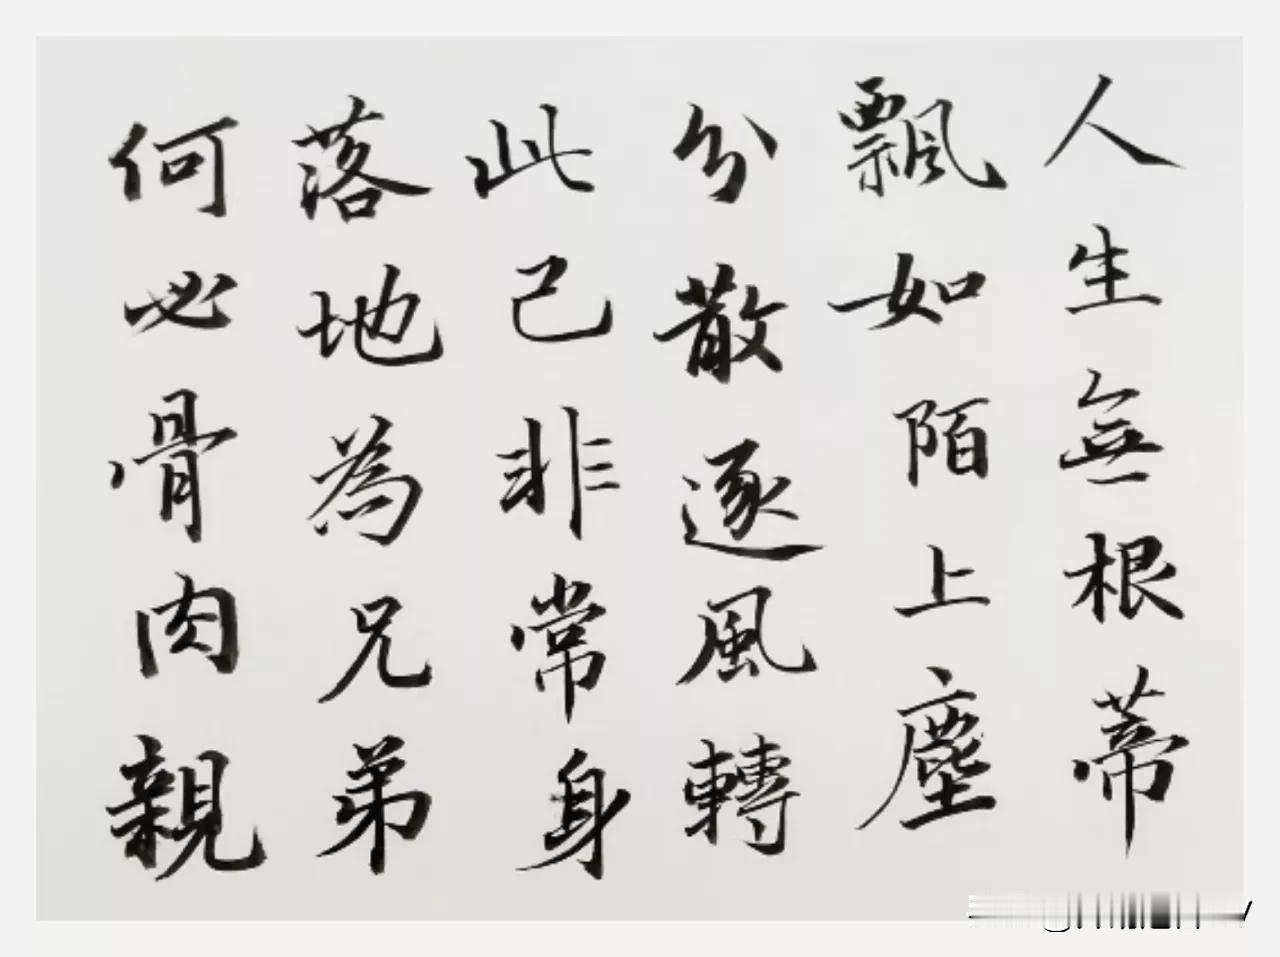 人生無根蒂
飄如陌上塵
分散逐風轉
此已非常身
落地為兄弟
何必骨肉親